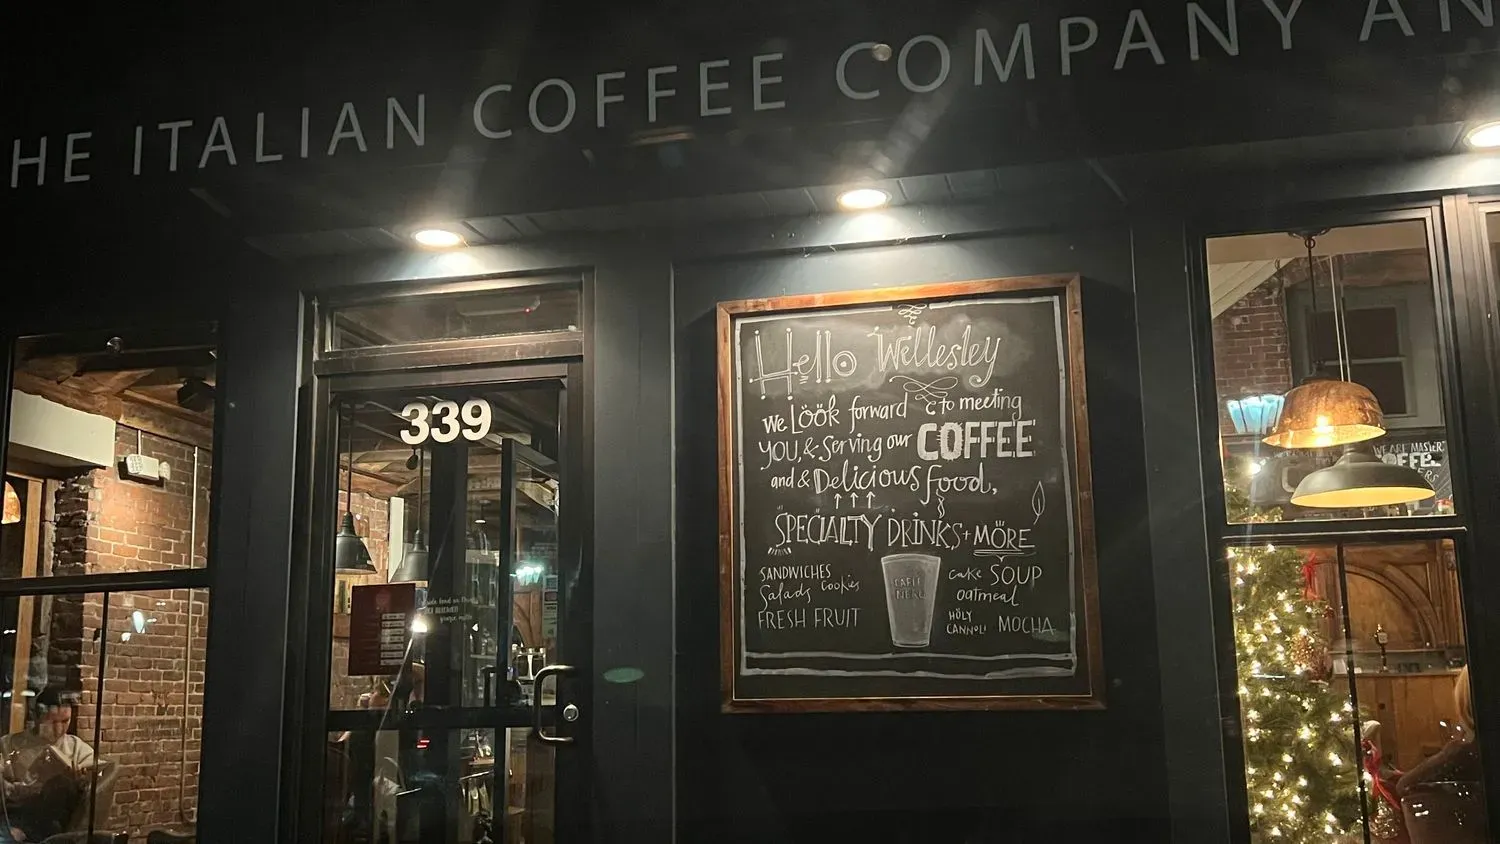 HE ITALIAN COFFEE COMPANY AN
339
Hello Wellesley
We Löök forward to meeting
YOU, & Serving our COFFEE
and & Delicious food,
SPECIALTY DRINKS + MÖRE
SANDWICHES
Salads Cookies
FRESH FRUIT
CAFFÈ
NERO
cake SOUP
oatmeal
HOLY
CANNOLI MOCHA
WE ARE MASTER
COFFE